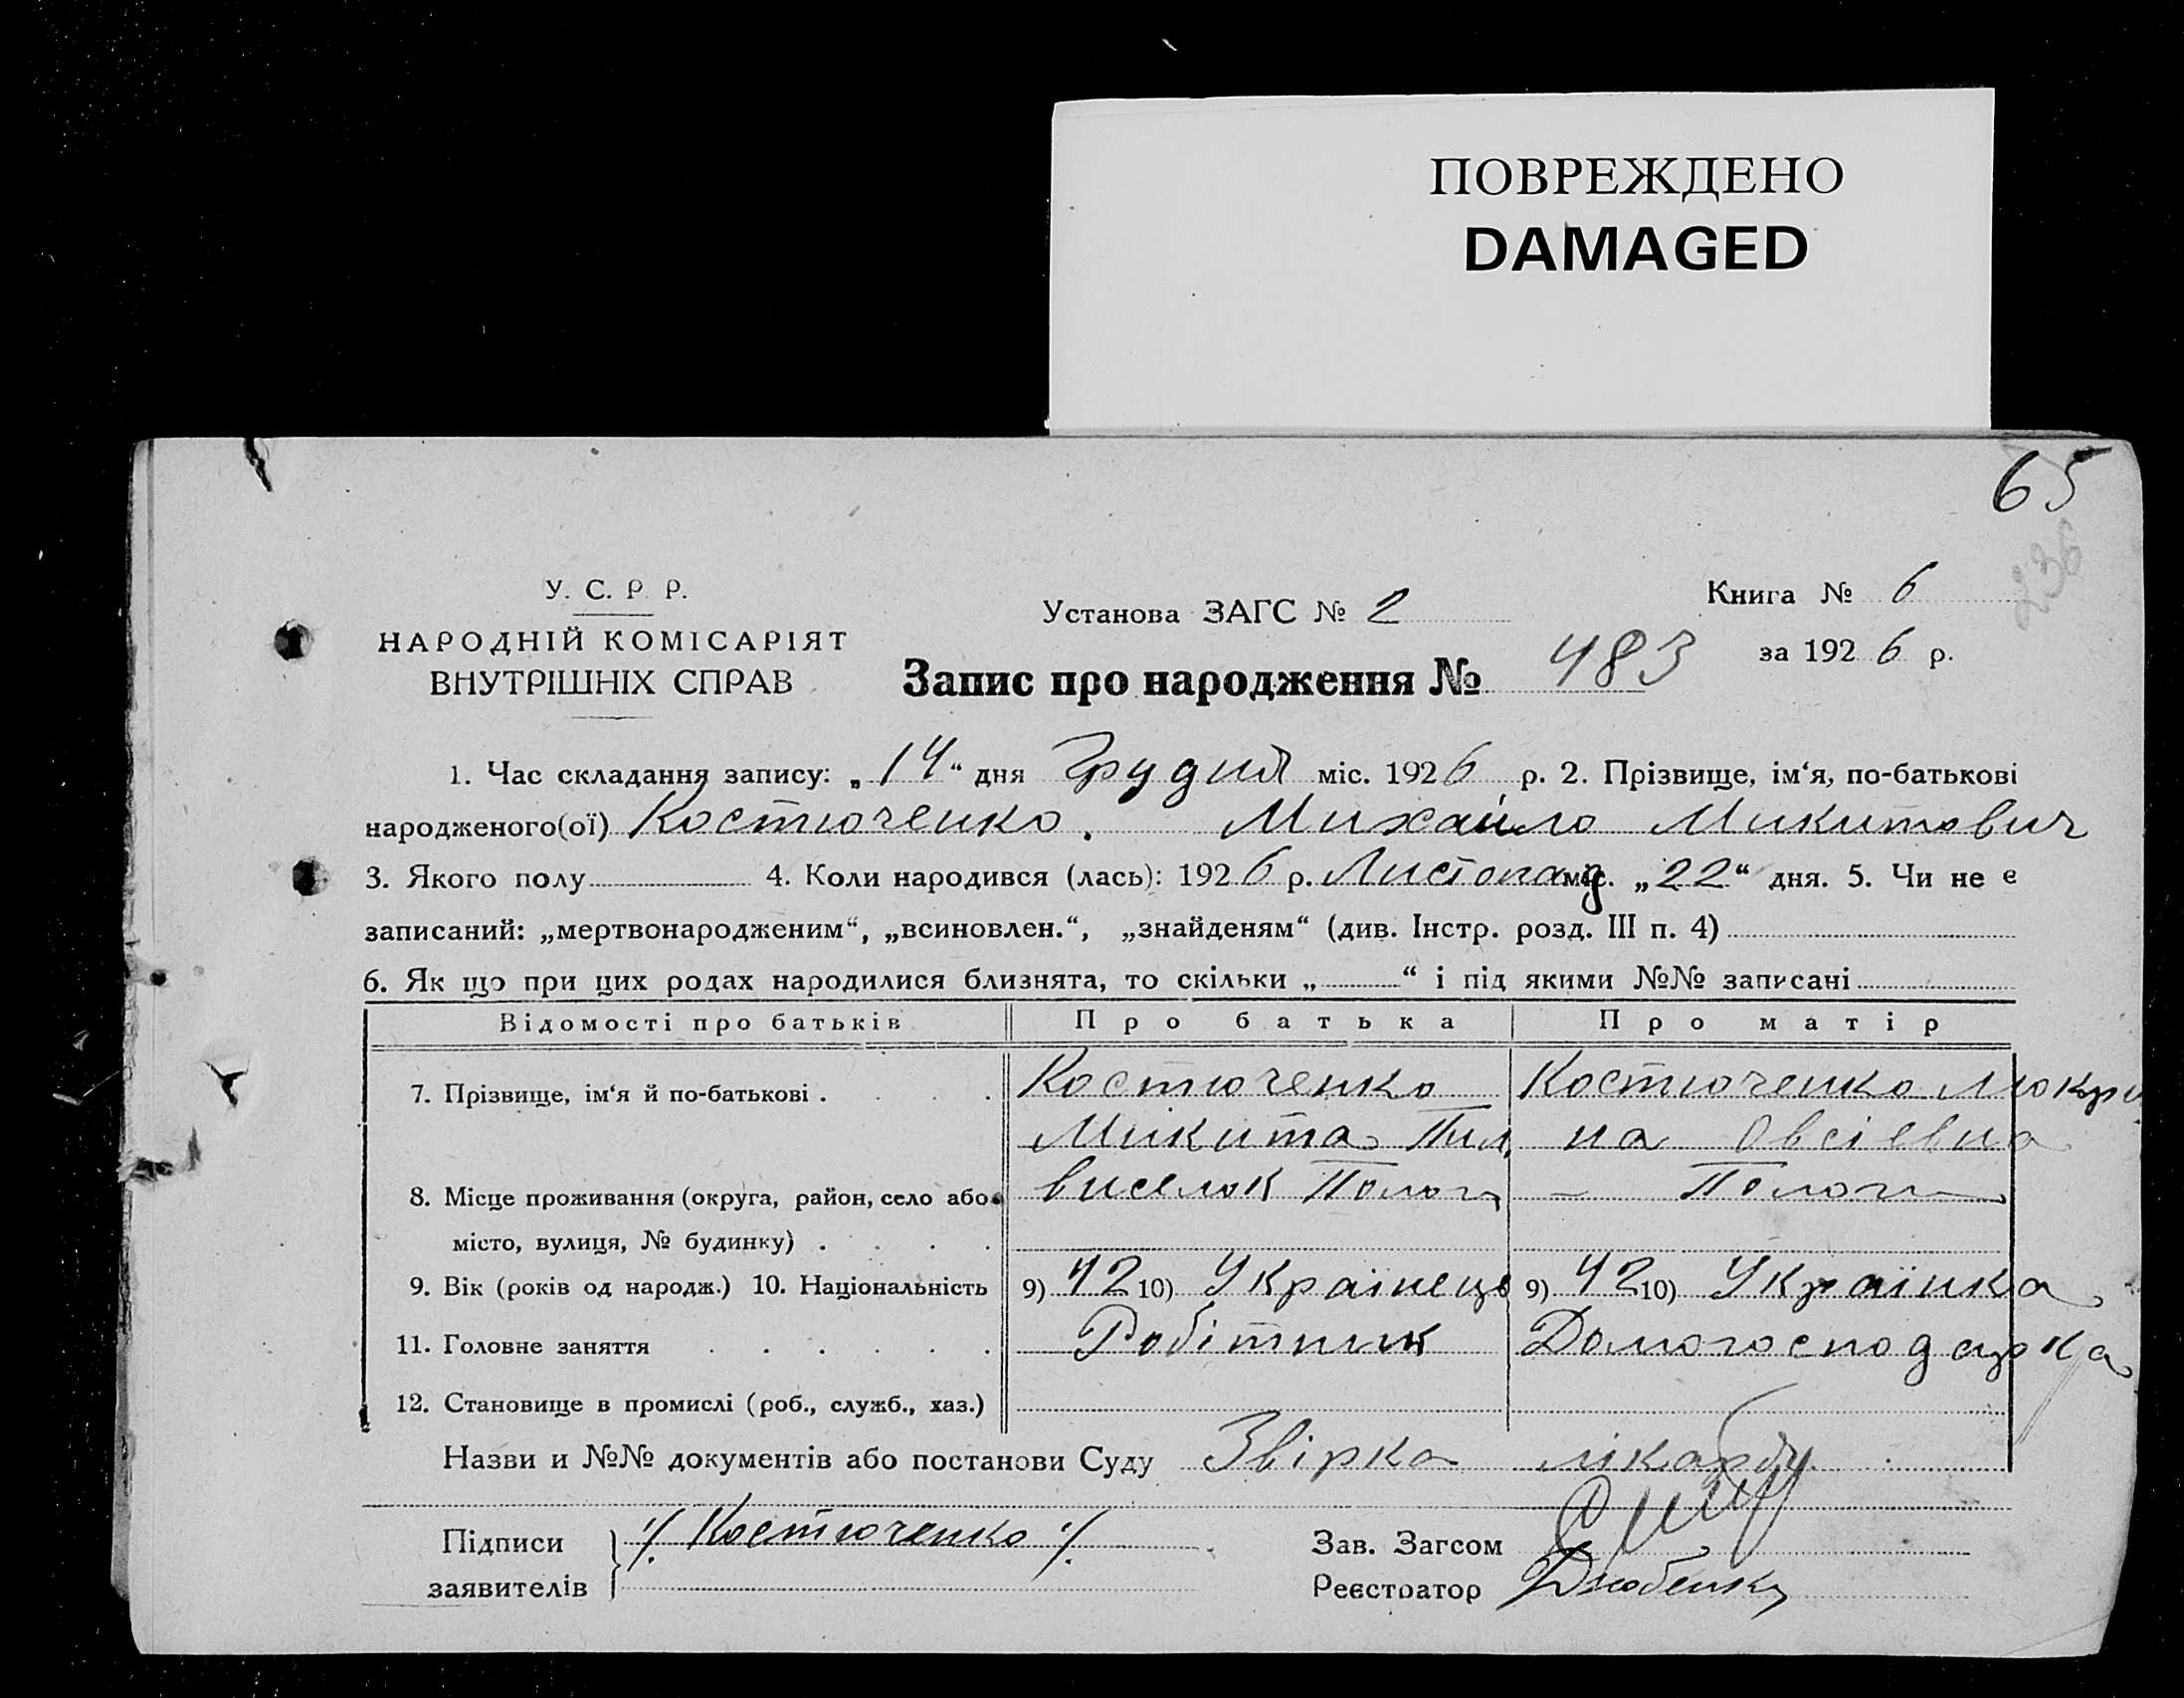 ПОВРЕЖДЕНО
DAMAGED
65
236
У. С. Р. Р.
НАРОДНІЙ КОМІСАРІЯТ
ВНУТРІШНІХ СПРАВ
Установа ЗАГС № 2
Книга № 6
за 1926 р.
Запис про народження № 483
1. Час складання запису: „14“ дня Грудня міс. 1926 р. 2. Прізвище, ім‘я, по-батькові
народженого(ої) Костюченко. Михайло Микитович
3. Якого полу 4. Коли народився (лась): 1926 р. Листопад міс. „22“ дня. 5. Чи не є
записаний: „мертвонародженим“, „всиновлен.“, „знайденям“ (див. Інстр. розд. III п. 4)
6. Як що при цих родах народилися близнята, то скільки „ “ і під якими №№ записані
Відомості про батьків Про батька Про матір
7. Прізвище, ім‘я й по-батькові . Костюченко Костюченко Мокри
Микита Пил. на Овсіевна
8. Місце проживання (округа, район, село або виселок Пологи - Пологи
місто, вулиця, № будинку) .
9. Вік (років од народж.) 10. Національність 9) 42 10) Українець 9) 42 10) Українка
11. Головне заняття Робітник Домогосподарка
12. Становище в промислі (роб., служб., хаз.)
Назви и №№ документів або постанови Суду Звірка лікарду
Підписи ./. Костюченко ./. Зав. Загсом
заявителів Реєстратор Дзюбенко